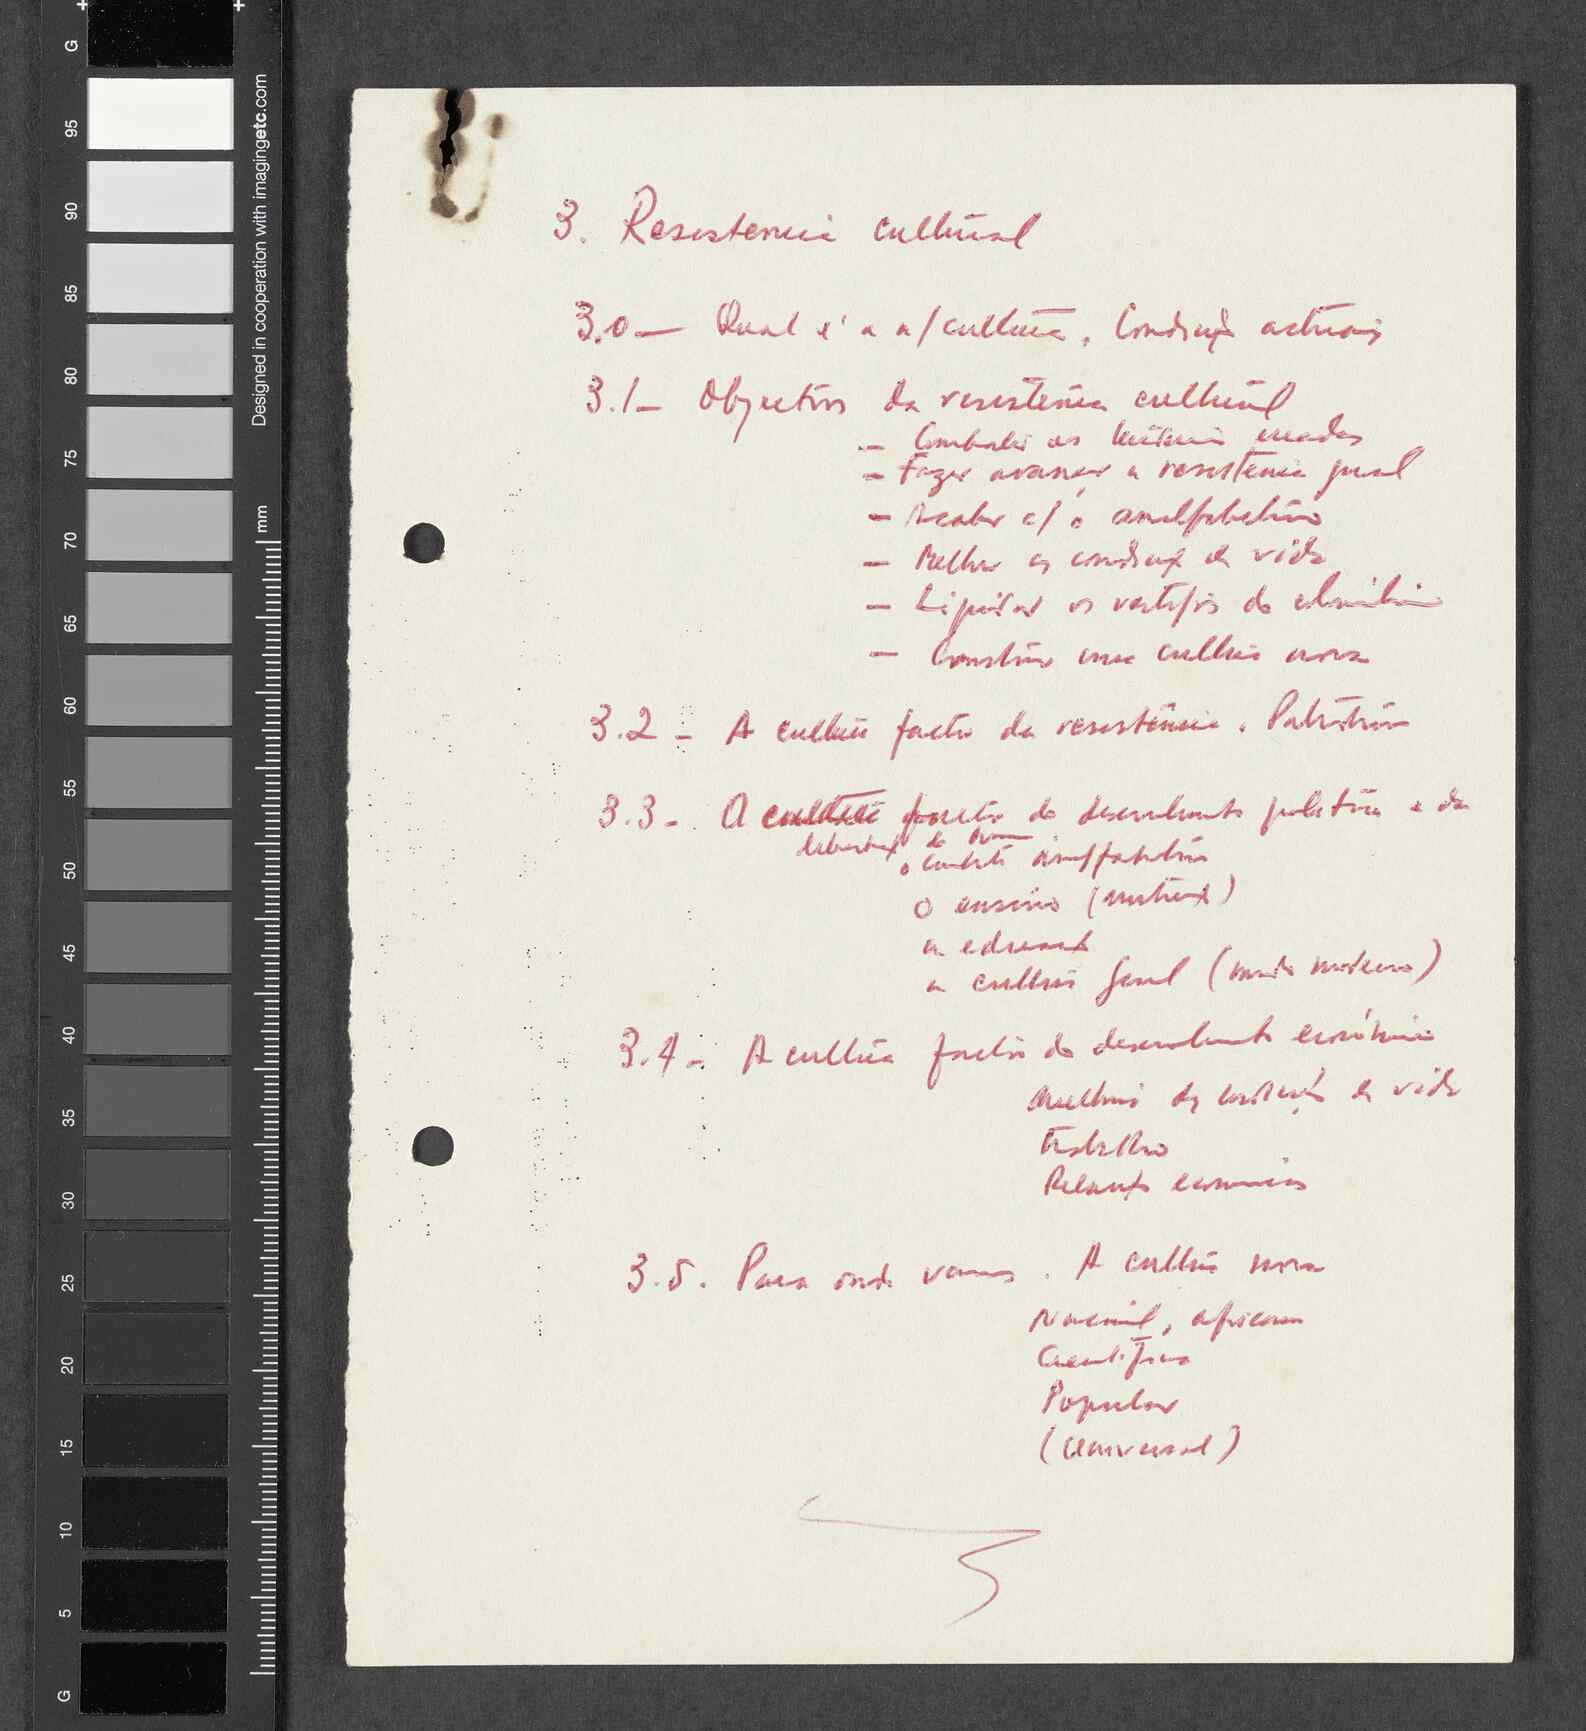 G
95
90
85
80
75
70
65
60
55
50
45
40
35
30
25
20
15
10
5
G
Designed in cooperation with imagingetc.com
mm
3. Resistencia cultural
3.0 — Qual é a n/cultura. Condições actuais
3.1 — Objectivos da resistencia cultural
— Combater as criadas
— Fazer avançar a resistencia geral
— Acabar c/ o analfabetismo
— Melhorar as condições de vida
— Liquidar os vestígios do
— Construir uma cultura nova
3.2 — A cultura factor da resistência. Patriotismo
3.3 — A cultura factor do desenvolvimento politico e da
do
. Combate analfabetismo
O ensino (instrução)
a educação
a cultura geral (mundo moderno)
3.4 — A cultura factor do desenvolvimento económico
Melhoria das condições de vida
Trabalho
Relações economicas
3.5. Para onde vamos. A cultura nova
Nacional, africana
Cientifica
Popular
(Universal)